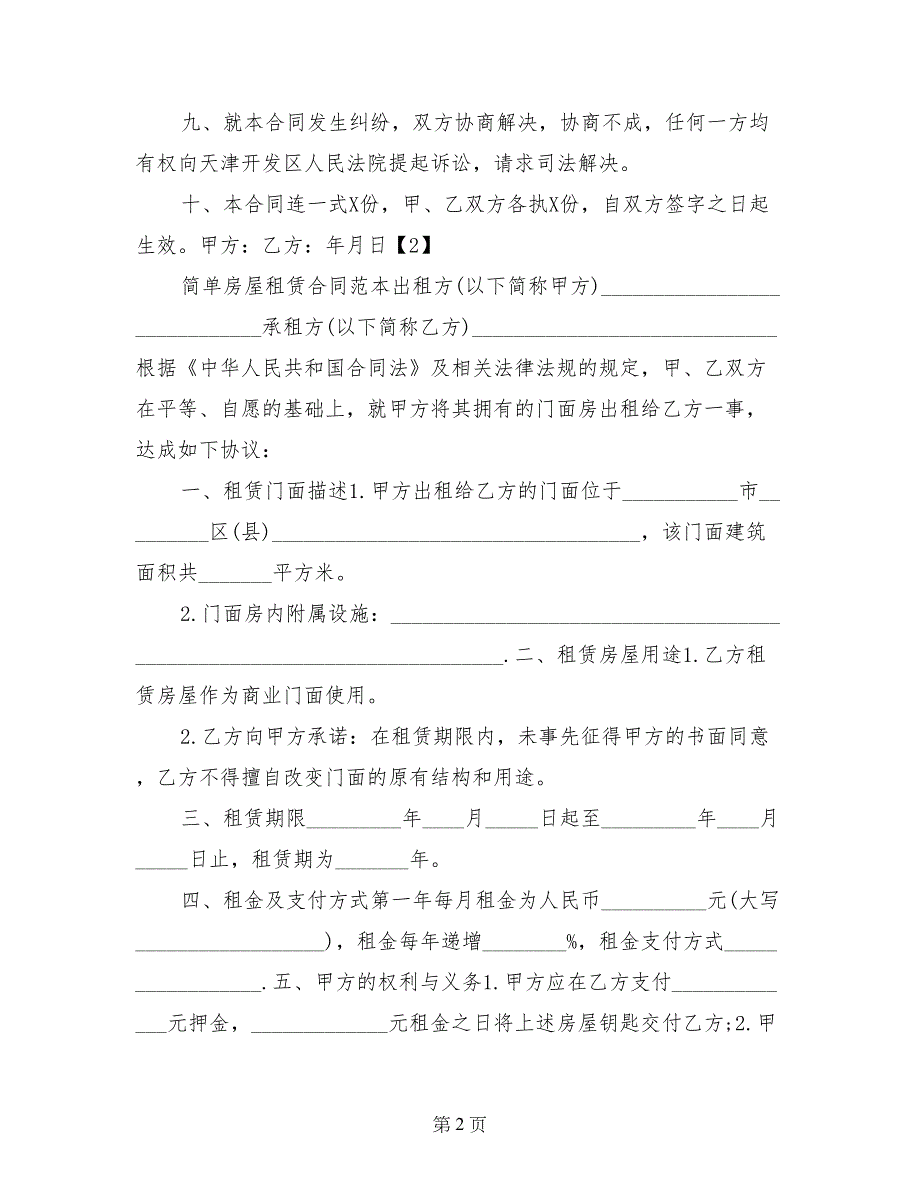 九、就本合同发生纠纷，双方协商解决，协商不成，任何一方均
有权向天津开发区人民法院提起诉讼，请求司法解决。
十、本合同连一式X份，甲、乙双方各执X份，自双方签字之日起
生效。甲方：乙方：年月日【2】
简单房屋租赁合同范本出租方(以下简称甲方)_________________
____________承租方(以下简称乙方)_____________________________
根据《中华人民共和国合同法》及相关法律法规的规定，甲、乙双方
在平等、自愿的基础上，就甲方将其拥有的门面房出租给乙方一事，
达成如下协议：
一、租赁门面描述1.甲方出租给乙方的门面位于___________市__
_______区(县)___________________________________，该门面建筑
面积共_______平方米。
2.门面房内附属设施：_____________________________________
___________________________________.二、租赁房屋用途1.乙方租
赁房屋作为商业门面使用。
2.乙方向甲方承诺：在租赁期限内，未事先征得甲方的书面同意
，乙方不得擅自改变门面的原有结构和用途。
三、租赁期限_________年____月_____日起至_________年____月
_____日止，租赁期为_______年。
四、租金及支付方式第一年每月租金为人民币__________元(大写
__________________)，租金每年递增________%，租金支付方式_____
____________.五、甲方的权利与义务1.甲方应在乙方支付__________
___元押金，_____________元租金之日将上述房屋钥匙交付乙方;2.甲
第 2 页